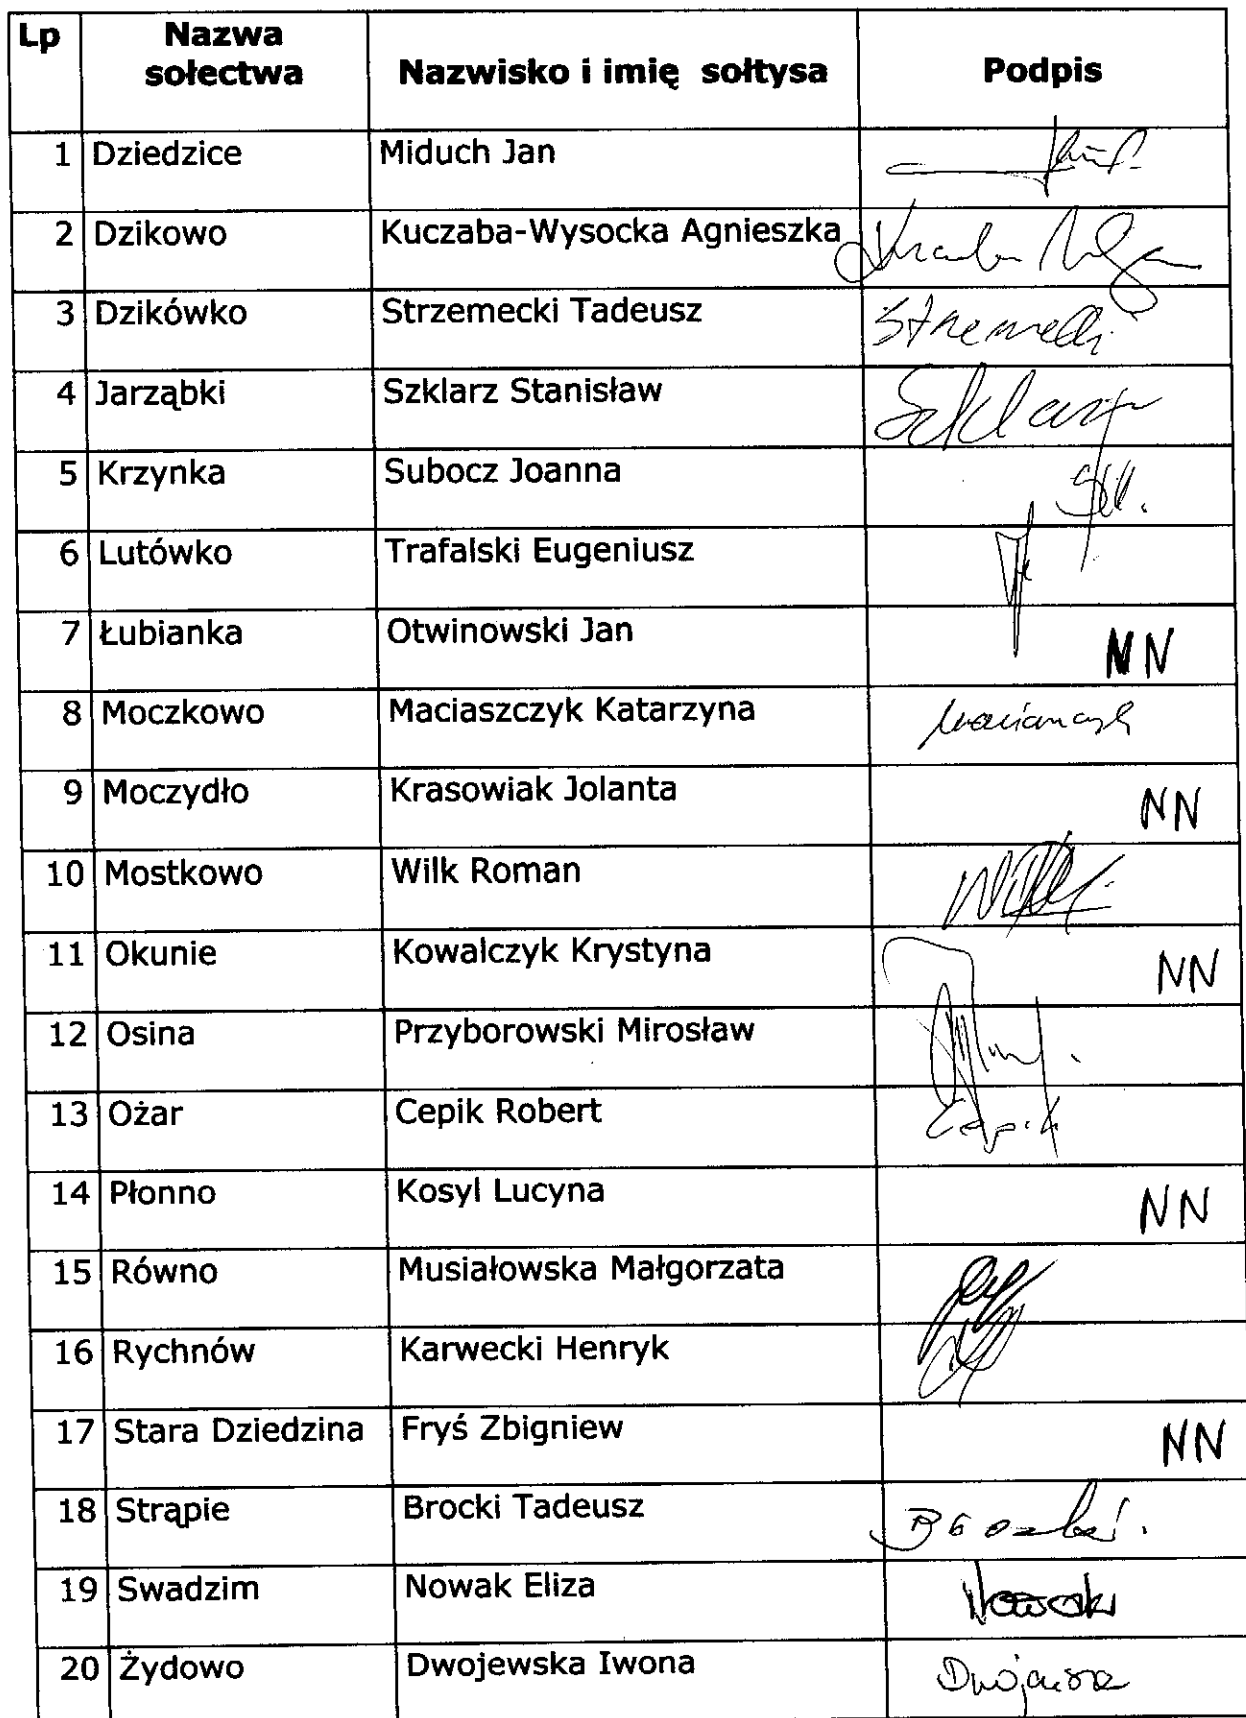 Lp Nazwa sołectwa Nazwisko i imię sołtysa Podpis
1 Dziedzice Miduch Jan
2 Dzikowo Kuczaba-Wysocka Agnieszka
3 Dzikówko Strzemecki Tadeusz
4 Jarząbki Szklarz Stanisław Szklarz
5 Krzynka Subocz Joanna
6 Lutówko Trafalski Eugeniusz
7 Łubianka Otwinowski Jan NN
8 Moczkowo Maciaszczyk Katarzyna
9 Moczydło Krasowiak Jolanta NN
10 Mostkowo Wilk Roman
11 Okunie Kowalczyk Krystyna NN
12 Osina Przyborowski Mirosław
13 Ożar Cepik Robert Cepik
14 Płonno Kosyl Lucyna NN
15 Równo Musiałowska Małgorzata
16 Rychnów Karwecki Henryk
17 Stara Dziedzina Fryś Zbigniew NN
18 Strąpie Brocki Tadeusz
19 Swadzim Nowak Eliza
20 Żydowo Dwojewska Iwona